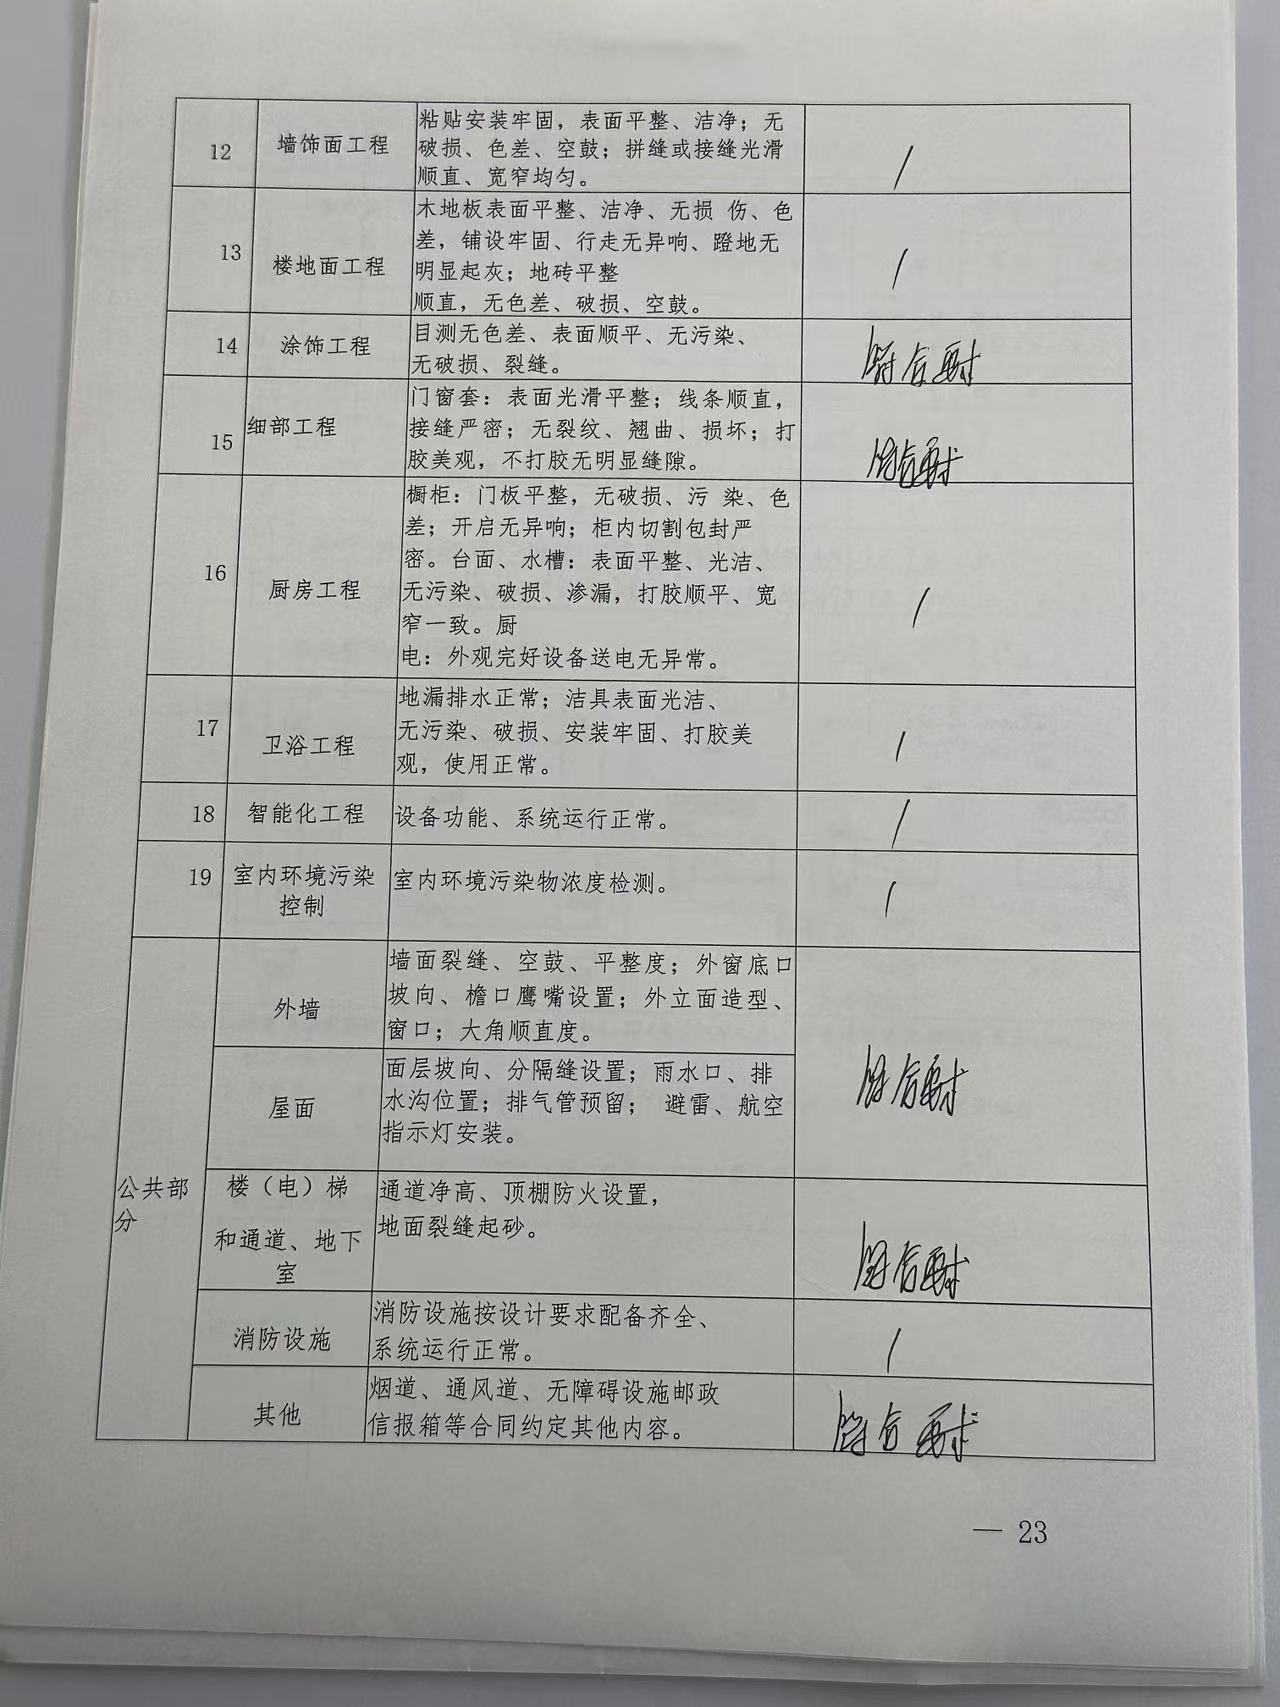 12
墙饰面工程
粘贴安装牢固，表面平整、洁净；无
破损、色差、空鼓；拼缝或接缝光滑
顺直、宽窄均匀。
/
13
楼地面工程
木地板表面平整、洁净、无损 伤、色
差，铺设牢固、行走无异响、蹬地无
明显起灰；地砖平整
顺直，无色差、破损、空鼓。
/
14
涂饰工程
目测无色差、表面顺平、无污染、
无破损、裂缝。
15
细部工程
门窗套：表面光滑平整；线条顺直，
接缝严密；无裂纹、翘曲、损坏；打
胶美观，不打胶无明显缝隙。
16
厨房工程
橱柜：门板平整，无破损、污 染、色
差；开启无异响；柜内切割包封严
密。台面、水槽：表面平整、光洁、
无污染、破损、渗漏，打胶顺平、宽
窄一致。厨
电：外观完好设备送电无异常。
/
17
卫浴工程
地漏排水正常；洁具表面光洁、
无污染、破损、安装牢固、打胶美
观，使用正常。
/
18
智能化工程
设备功能、系统运行正常。
/
19
室内环境污染
控制
室内环境污染物浓度检测。
/
公共部
分
外墙
墙面裂缝、空鼓、平整度；外窗底口
坡向、檐口鹰嘴设置；外立面造型、
窗口；大角顺直度。
屋面
面层坡向、分隔缝设置；雨水口、排
水沟位置；排气管预留； 避雷、航空
指示灯安装。
楼（电）梯
和通道、地下
室
通道净高、顶棚防火设置，
地面裂缝起砂。
消防设施
消防设施按设计要求配备齐全、
系统运行正常。
/
其他
烟道、通风道、无障碍设施邮政
信报箱等合同约定其他内容。
— 23